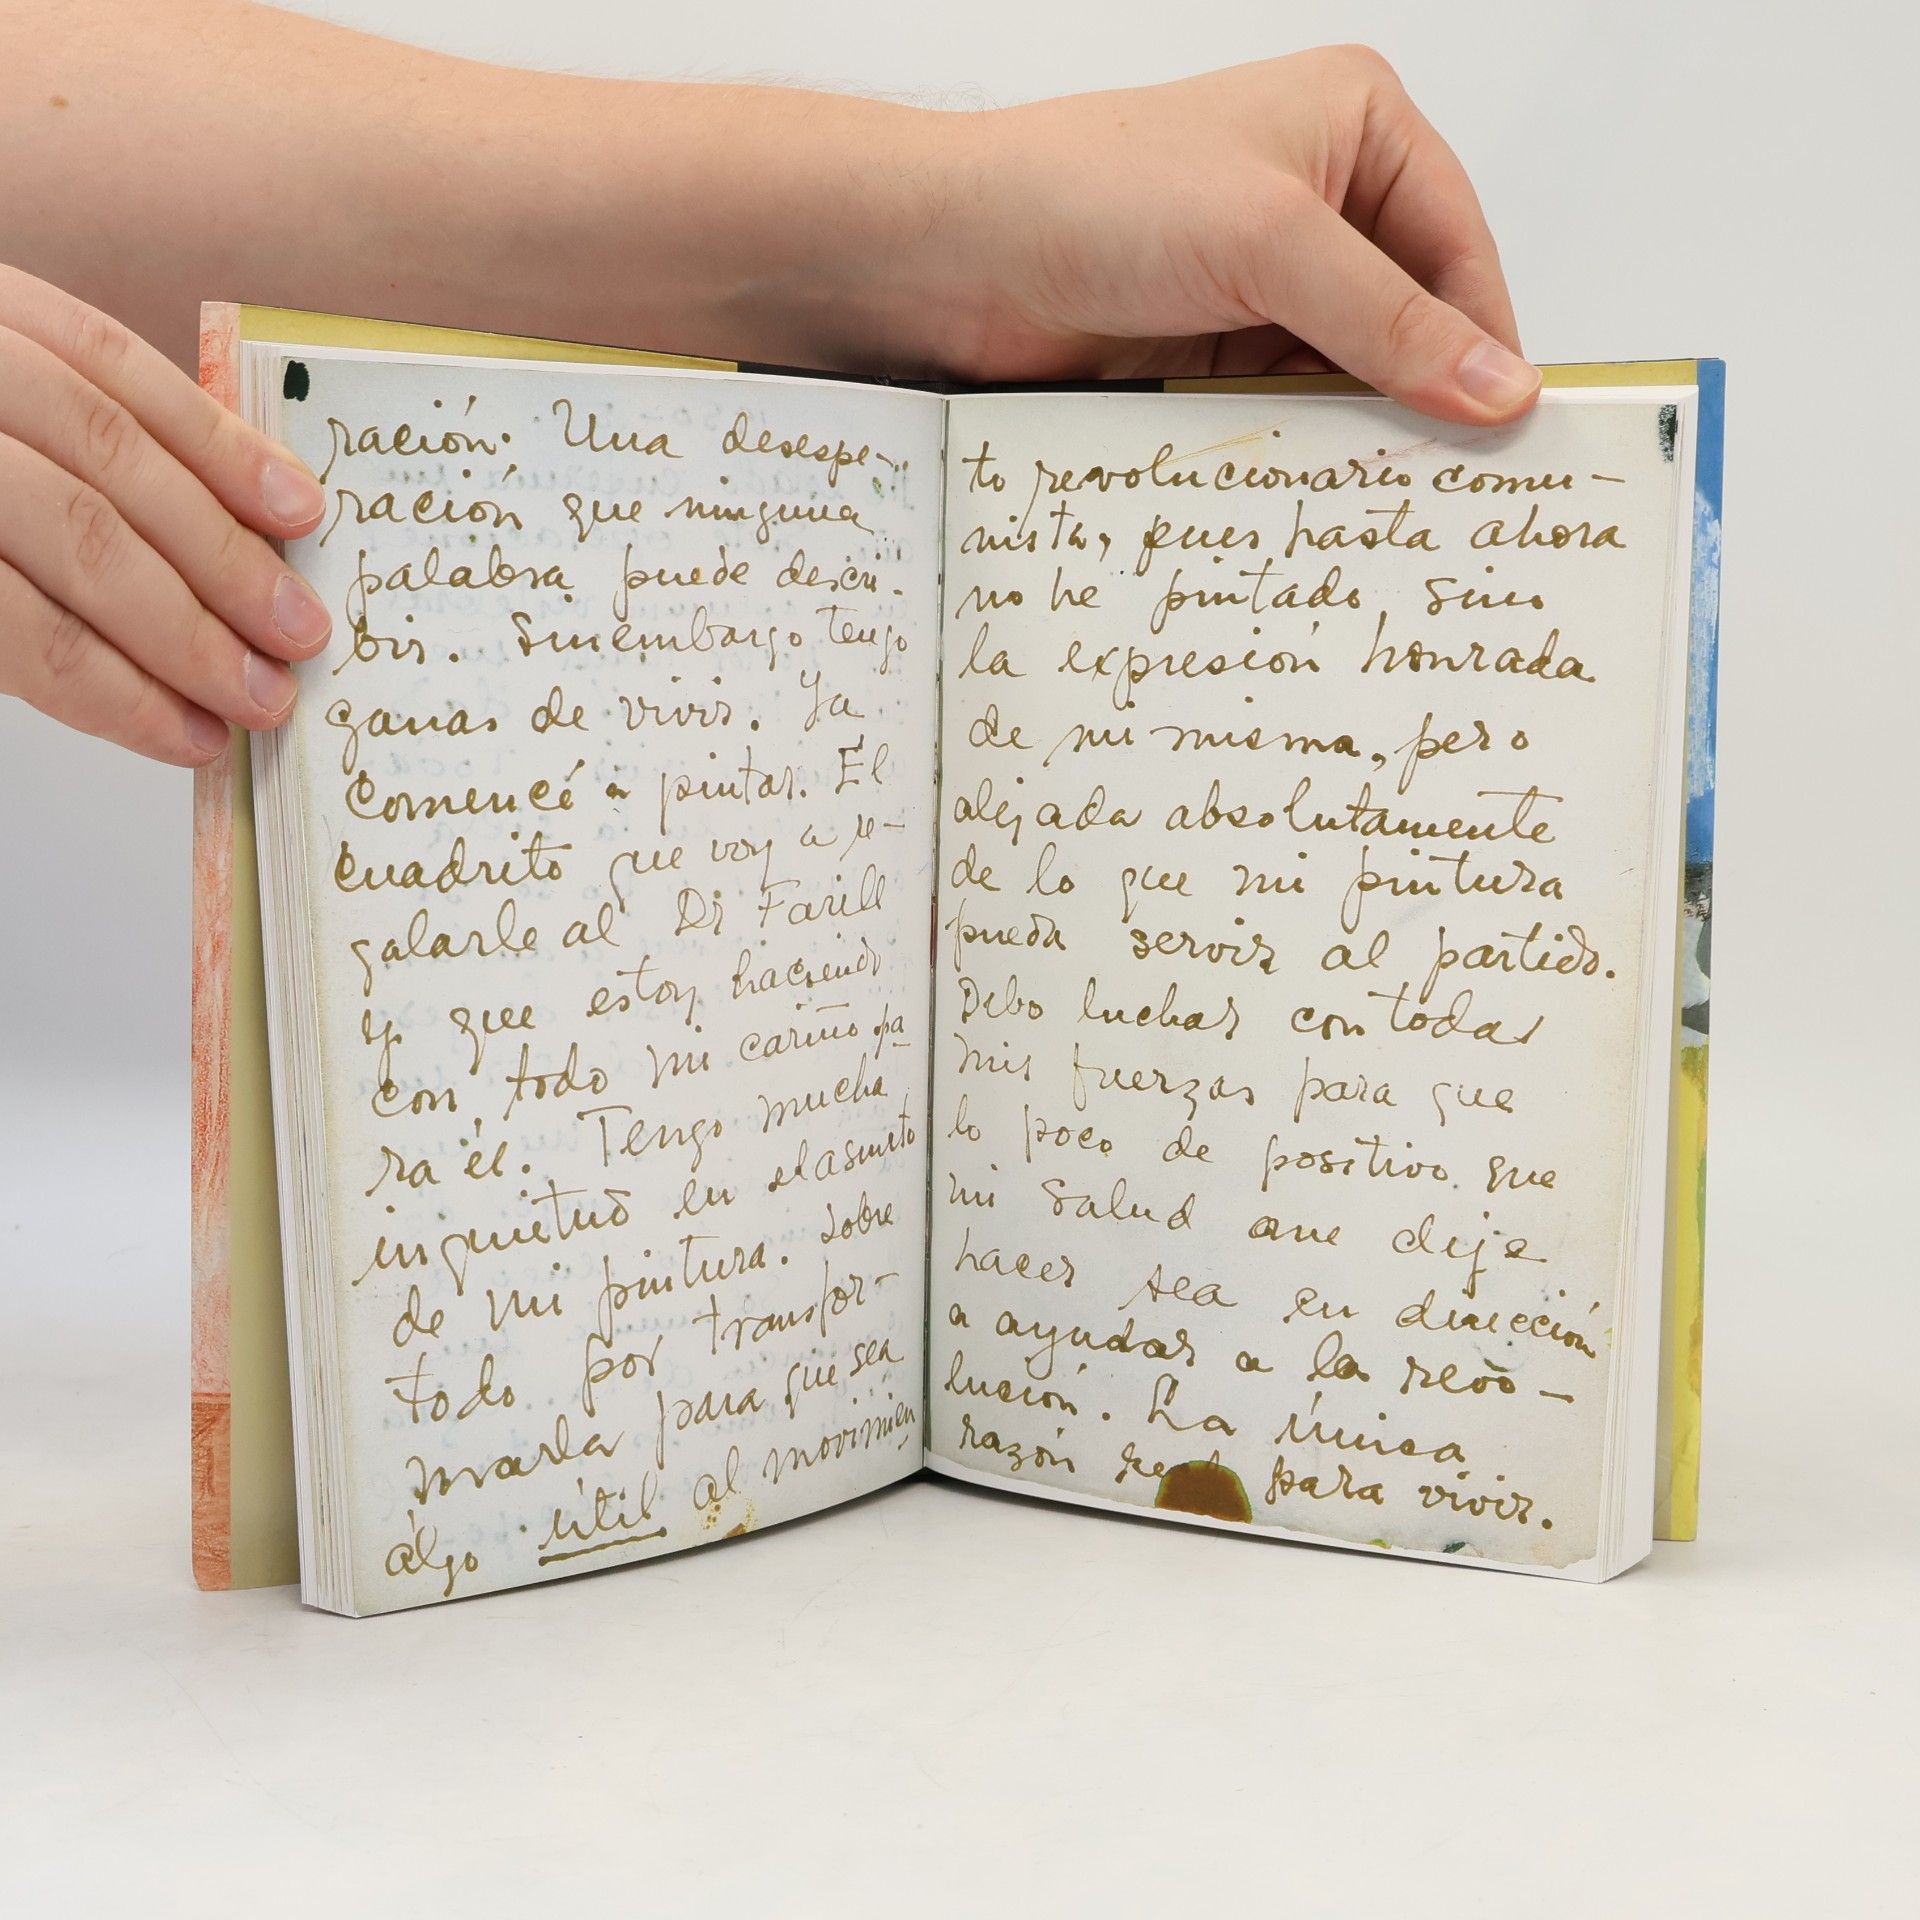 ración. Una desespe-
ración que ninguna
palabra puede descri-
bir. Sinembargo tengo
ganas de vivir. Ya
comencé a pintar. El
cuadrito que voy a re-
galarle al Dr Farill
y que estoy haciendo
con todo mi cariño pa
ra él. Tengo mucha
inquietud en el asunto
de mi pintura. Sobre
todo por transfor-
marla para que sea
algo útil al movimien
to revolucionario comu-
nista, pues hasta ahora
no he pintado sino
la expresión honrada
de mi misma, pero
alejada absolutamente
de lo que mi pintura
pueda servir al partido.
Debo luchar con todas
mis fuerzas para que
lo poco de positivo que
mi salud me deje
hacer sea en dirección
a ayudar a la revo-
lución. La única
razón para vivir.